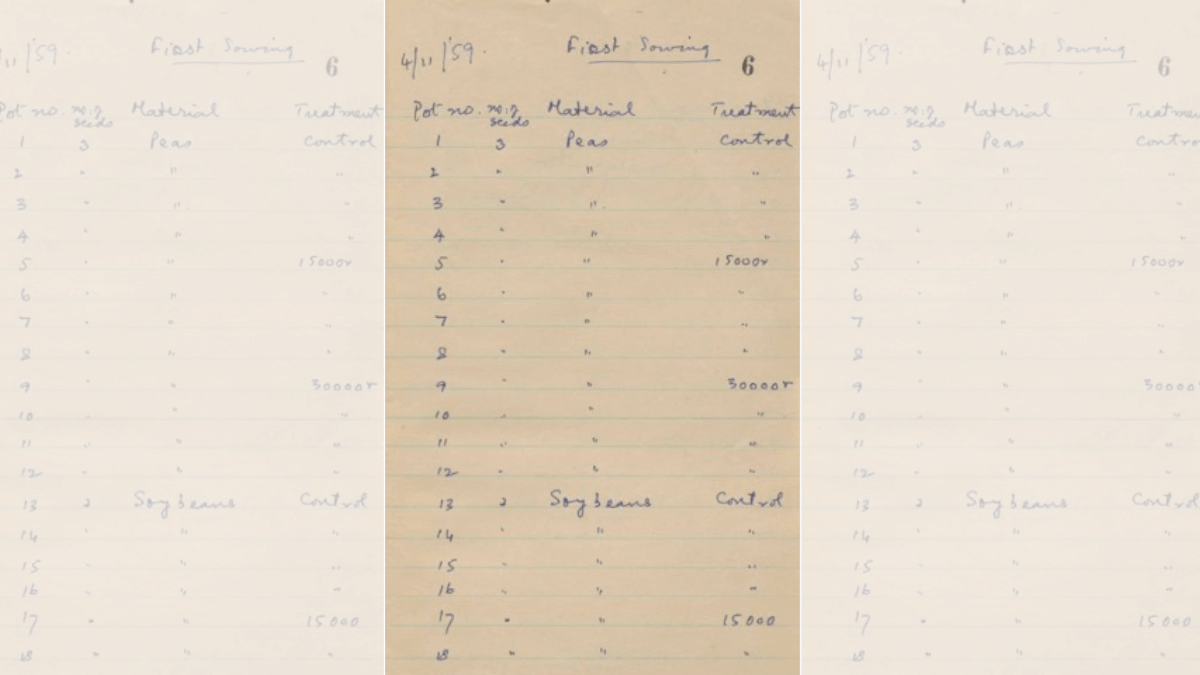 4/11/'59. First Sowing 6
Pot no. no. of seeds Material Treatment
1 3 Peas Control
2 " " "
3 " " "
4 " " "
5 " " 15000r
6 " " "
7 " " "
8 " " "
9 " " 30000r
10 " " "
11 " " "
12 " " "
13 2 Soybeans Control
14 " " "
15 " " "
16 " " "
17 " " 15000
18 " " "